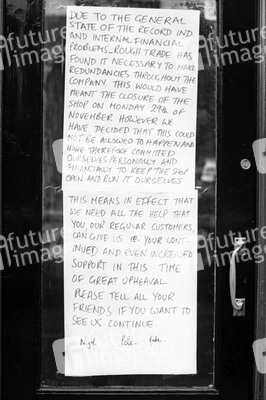 DUE TO THE GENERAL
STATE OF THE RECORD IND.
AND INTERNAL FINANCIAL
PROBLEMS, ROUGH TRADE HAS
FOUND IT NECESSARY TO MAKE
REDUNDANCIES THROUGHOUT THE
COMPANY. THIS WOULD HAVE
MEANT THE CLOSURE OF THE
SHOP ON MONDAY 29th OF
NOVEMBER. HOWEVER WE
HAVE DECIDED THAT THIS COULD
NOT BE ALLOWED TO HAPPEN AND
HAVE THEREFORE COMMITTED
OURSELVES PERSONALLY AND
FINANCIALLY TO KEEP THE SHOP
OPEN AND RUN IT OURSELVES
THIS MEANS IN EFFECT THAT
WE NEED ALL THE HELP THAT
YOU, OUR REGULAR CUSTOMERS,
CAN GIVE US. IE. YOUR CONT-
INUED AND EVEN INCREASED
SUPPORT IN THIS TIME
OF GREAT UPHEAVAL.
PLEASE TELL ALL YOUR
FRIENDS IF YOU WANT TO
SEE US CONTINUE.
Nigel. Pete. Jude.
future images